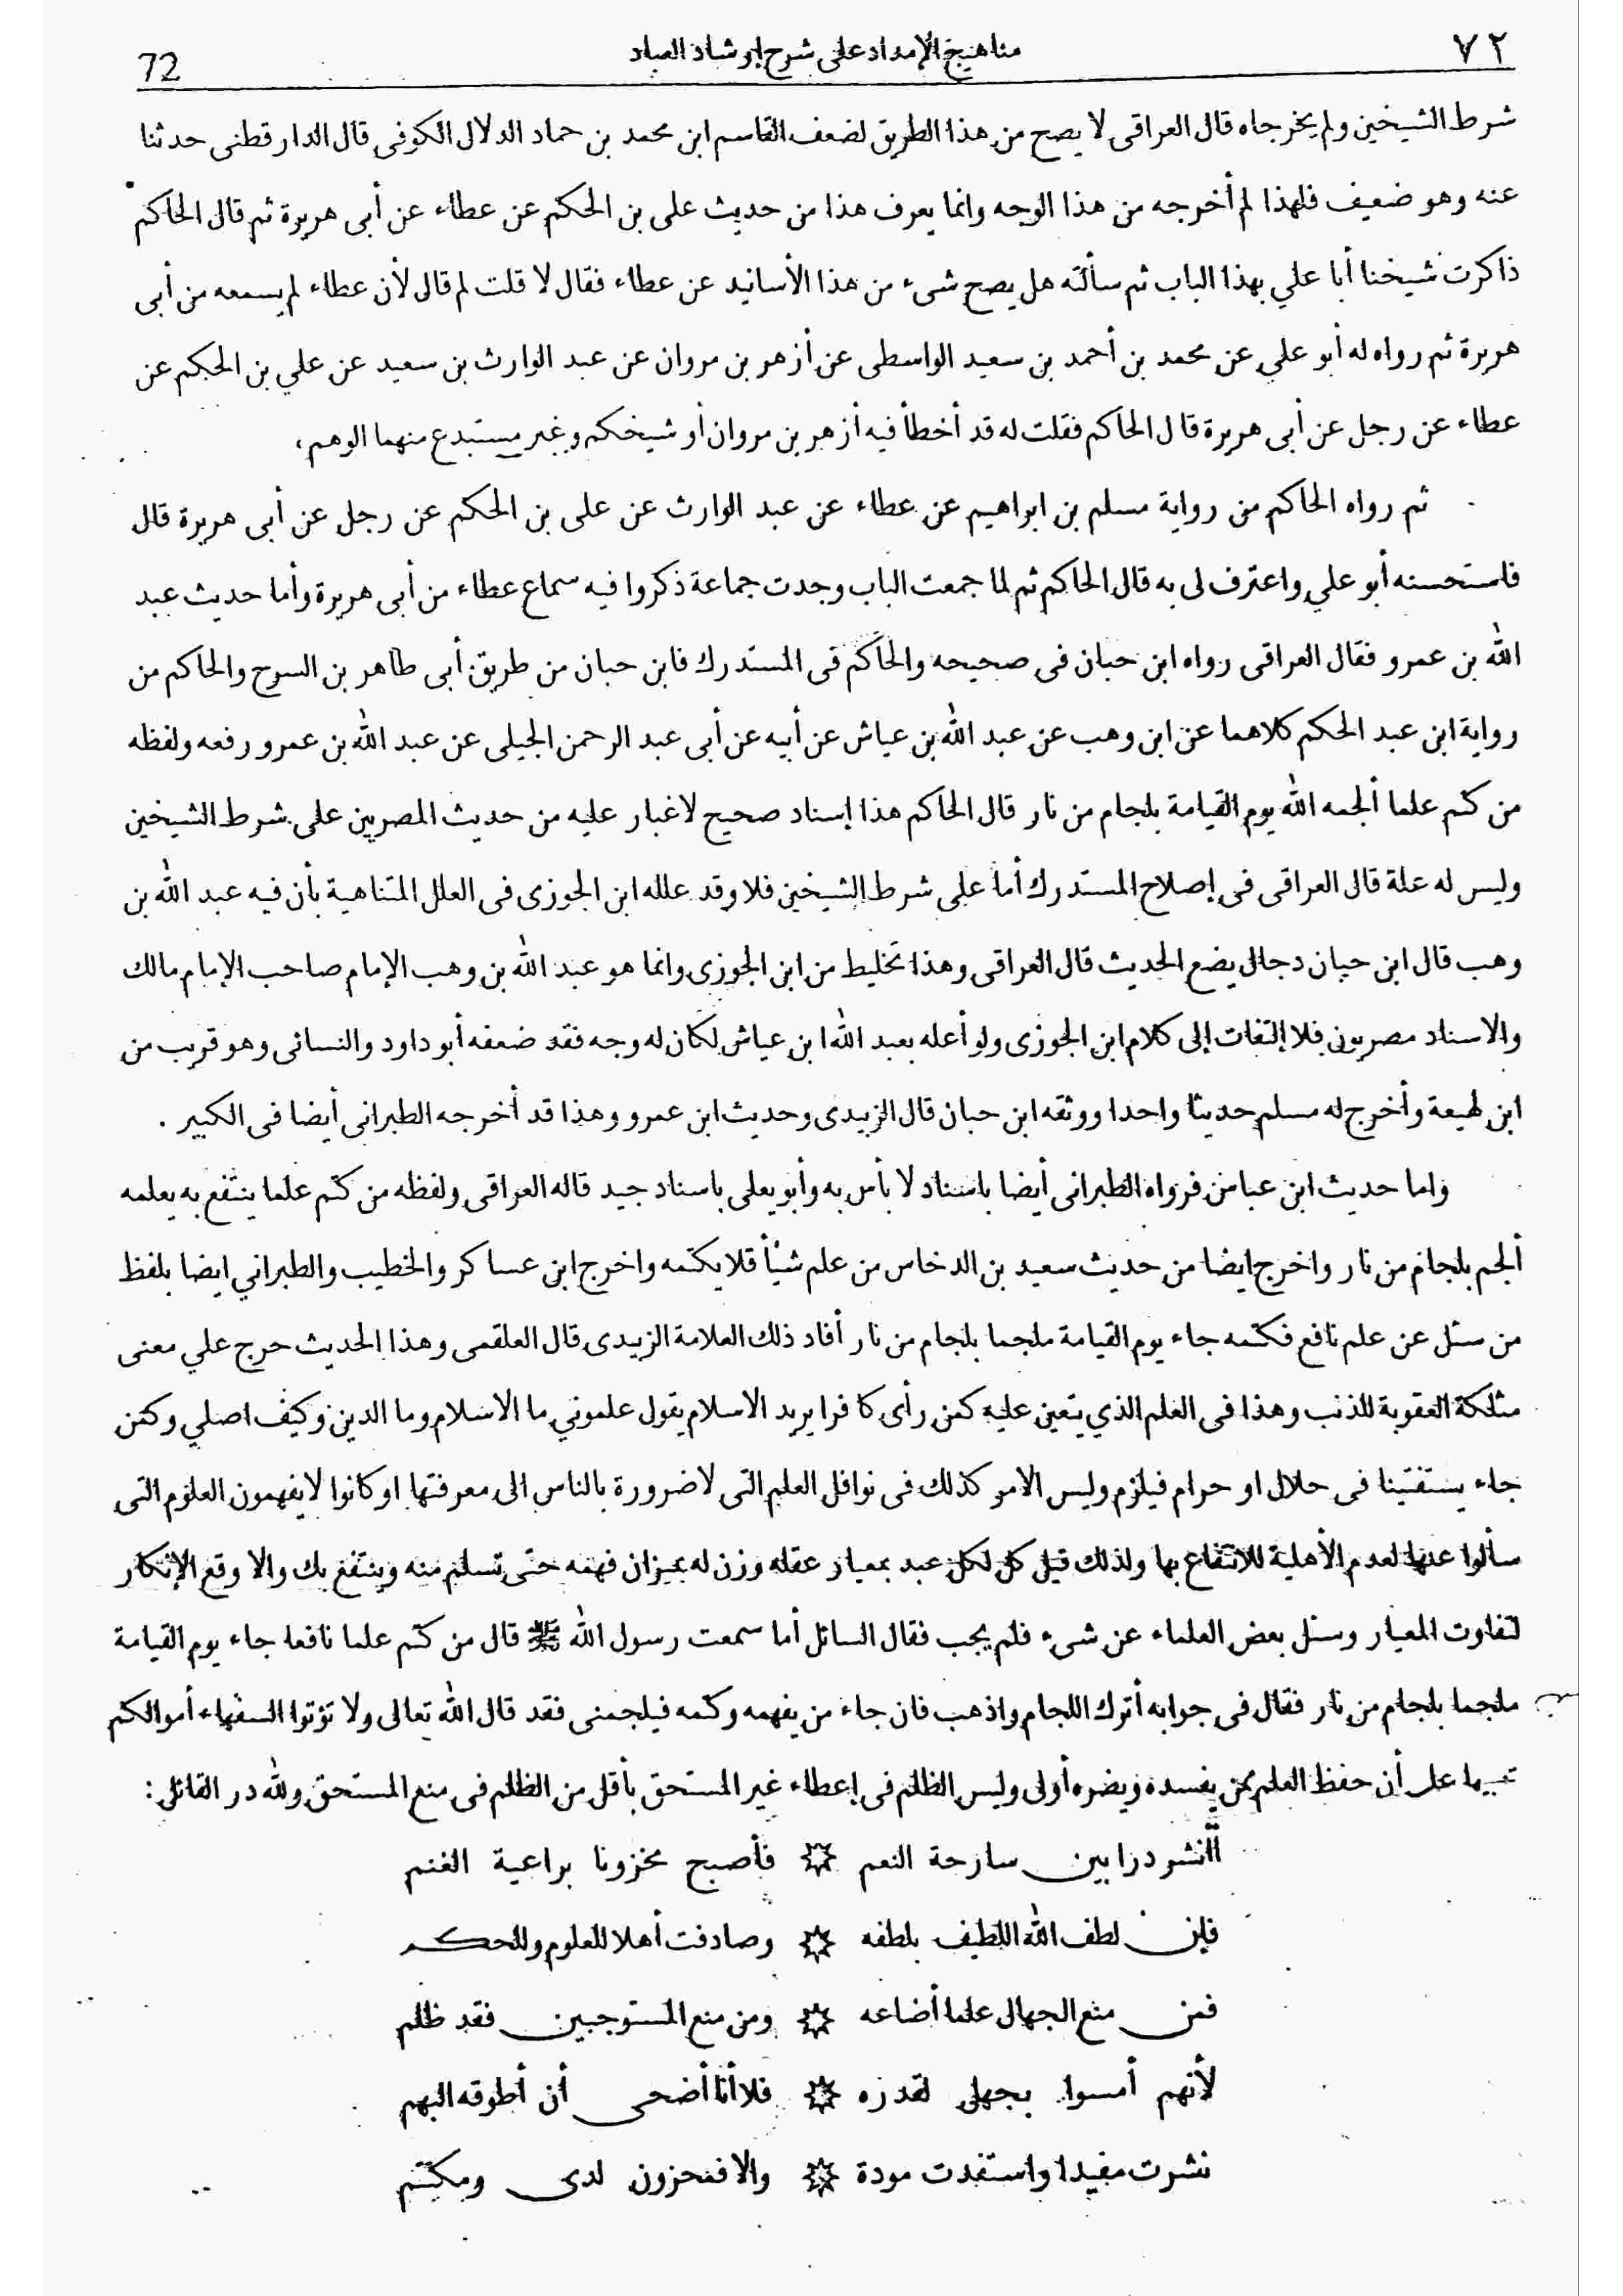 ٧٢
مناهيج الإمداد على شرح إرشاد العباد
72
شرط الشيخين ولم يخرجاه قال العراقى لا يصح من هذا الطريق لضعف القاسم ابن محمد بن حماد الدلال الكوفى قال الدارقطنى حدثنا
عنه وهو ضعيف فلهذا لم أخرجه من هذا الوجه وانما يعرف هذا من حديث على بن الحكم عن عطاء عن أبى هريرة ثم قال الحاكم
ذاكرت شيخنا أبا علي بهذا الباب ثم سألته هل يصح شىء من هذا الأسانيد عن عطاء فقال لا قلت لم قال لأن عطاء لم يسمعه من أبى
هريرة ثم رواه له أبو علي عن محمد بن أحمد بن سعيد الواسطى عن أزهر بن مروان عن عبد الوارث بن سعيد عن علي بن الحكم عن
عطاء عن رجل عن أبى هريرة قال الحاكم فقلت له قد أخطأ فيه أزهر بن مروان أو شيخكم وغير مستبدع منهما الوهم،
ثم رواه الحاكم من رواية مسلم بن ابراهيم عن عطاء عن عبد الوارث عن على بن الحكم عن رجل عن أبى هريرة قال
فاستحسنه أبو علي واعترف لى به قال الحاكم ثم لما جمعت الباب وجدت جماعة ذكروا فيه سماع عطاء من أبى هريرة وأما حديث عبد
الله بن عمرو فقال العراقى رواه ابن حبان فى صحيحه والحاكم فى المستدرك فابن حبان من طريق أبى طاهر بن السرح والحاكم من
رواية ابن عبد الحكم كلاهما عن ابن وهب عن عبد الله بن عياش عن أبيه عن أبى عبد الرحمن الجيلى عن عبد الله بن عمرو رفعه ولفظه
من كتم علما ألجمه الله يوم القيامة بلجام من نار قال الحاكم هذا إسناد صحيح لاغبار عليه من حديث المصريين على شرط الشيخين
وليس له علة قال العراقى فى إصلاح المستدرك أما على شرط الشيخين فلا وقد علله ابن الجوزى فى العلل المتناهية بأن فيه عبد الله بن
وهب قال ابن حبان دجال يضع الحديث قال العراقى وهذا تخليط من ابن الجوزى وانما هو عبد الله بن وهب الإمام صاحب الإمام مالك
والاسناد مصريون فلا إلتفات إلى كلام ابن الجوزى ولو أعله بعبد الله ابن عياش لكان له وجه فقد ضعفه أبو داود والنسائى وهو قريب من
ابن لهيعة وأخرج له مسلم حديثا واحدا ووثقه ابن حبان قال الزبيدى وحديث ابن عمرو وهذا قد أخرجه الطبرانى أيضا فى الكبير .
واما حديث ابن عباس فرواه الطبرانى أيضا باسناد لا بأس به وأبو يعلى باسناد جيد قاله العراقى ولفظه من كتم علما ينتفع به يعلمه
ألجم بلجام من نار واخرج ايضا من حديث سعيد بن الدخاس من علم شيأ فلا يكتمه واخرج ابن عساكر والخطيب والطبراني ايضا بلفظ
من سئل عن علم نافع فكتمه جاء يوم القيامة ملجما بلجام من نار أفاد ذلك العلامة الزبيدى قال العلقمى وهذا الحديث حرج علي معنى
مثلكة العقوبة للذنب وهذا فى العلم الذي يتعين عليه كمن رأى كافرا يريد الاسلام يقول علموني ما الاسلام وما الدين وكيف اصلي وكمن
جاء يستفتينا فى حلال او حرام فيلزم وليس الامر كذلك فى نوافل العلم التى لا ضرورة بالناس الى معرفتها او كانوا لا يفهمون العلوم التى
سألوا عنها لعدم الأهلية للانتفاع بها ولذلك قيل كل لكل عبد بمعيار عقله وزن له بميزان فهمه حتى تسلم منه وينتفع بك والا وقع الإنكار
لتفاوت المعيار وسئل بعض العلماء عن شىء فلم يجب فقال السائل أما سمعت رسول الله ﷺ قال من كتم علما نافعا جاء يوم القيامة
ملجما بلجام من نار فقال فى جوابه أترك اللجام واذهب فان جاء من يفهمه وكتمه فيلجمنى فقد قال الله تعالى ولا تؤتوا السفهاء أموالكم
تنبيها على أن حفظ العلم ممن يفسده ويضره أولى وليس الظلم فى إعطاء غير المستحق بأقل من الظلم فى منع المستحق ولله در القائل :
أأنشر درا بين سارحة النعم ۞ فأصبح مخزونا براعية الغنم
فإن لطف الله اللطيف بلطفه ۞ وصادفت أهلا للعلوم وللحكم
فمن منع الجهال علما أضاعه ۞ ومن منع المستوجبين فقد ظلم
لأنهم أمسوا بجهل لقدره ۞ فلا أنا أضحى أن أطوقه البهم
نشرت مفيدا واستفدت مودة ۞ والا فمخزون لدى ومكتتم